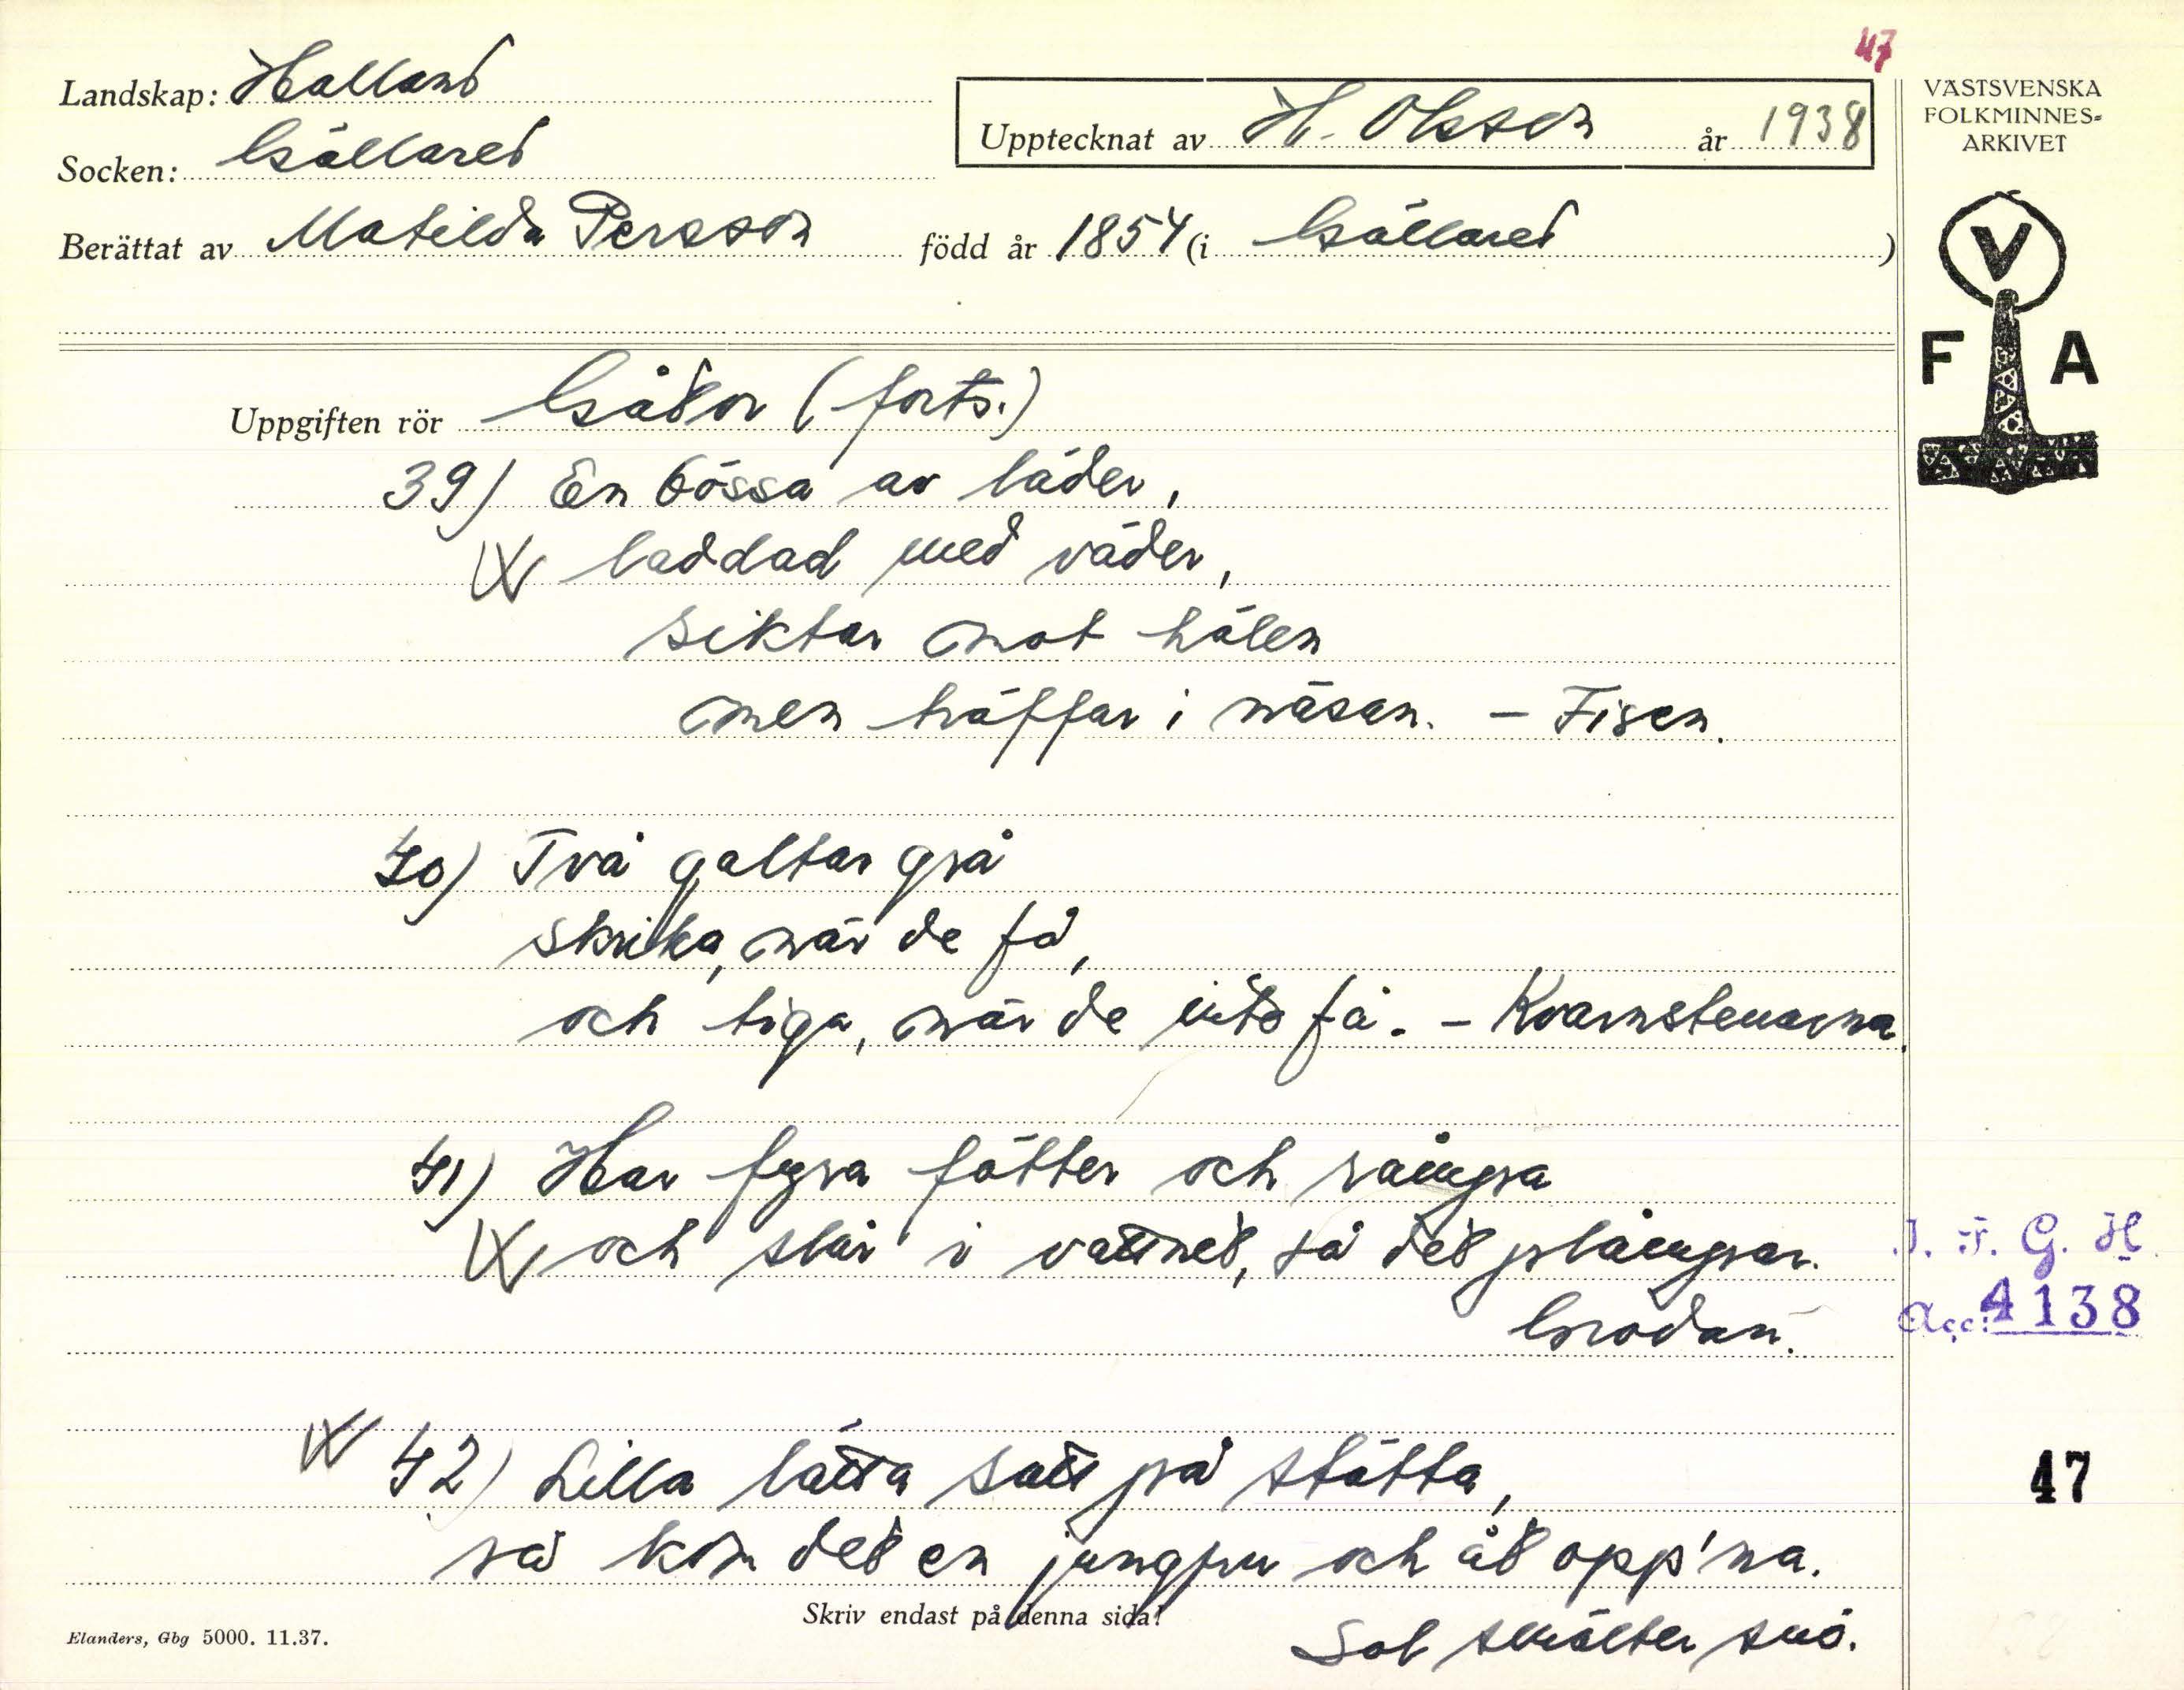 47
Landskap: Halland
Socken: Gällared
Berättat av Matilda Persson född år 1854 (i Gällared)
Upptecknat av H. Olsson år 1938
VÄSTSVENSKA
FOLKMINNES-
ARKIVET
V
F A
Uppgiften rör Gåtor (forts.)
39) En bössa av läder,
laddad med väder,
siktar mot hälen
men träffar i näsan. – Fisen.
40) Två galtar grå
skrika, när de få,
och tiga, när de inte få. – Kvarnstenarna.
41) Har fyra fötter och
och slår i vattnet, så det
Grodan.
42) Lilla lätta satt på stätta,
så kom det en jungfru och åt opp'na.
Sol smälter snö.
I. F. G. H.
Acc: 4138
47
Skriv endast på denna sida!
Elanders, Gbg 5000. 11.37.